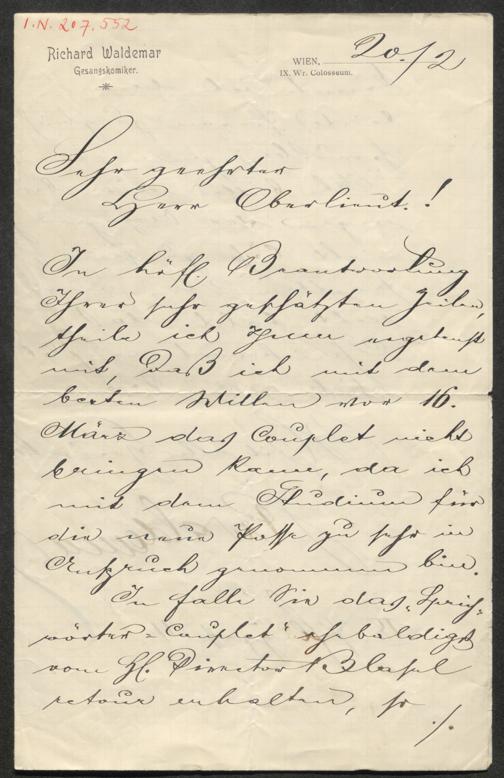 I.N. 207.552
Richard Waldemar
Gesangskomiker.
WIEN, 20./2
IX. Wr. Colosseum.
Sehr geehrter
Herr Oberlieut.!
In höfl. Beantwortung
Ihrer sehr geschätzten Zeilen,
theile ich Ihnen ergebenst
mit, daß ich mit dem
besten Willen vor 16.
März das Couplet nicht
bringen kann, da ich
mit dem Studium für
die neue Posse zu sehr in
Anspruch genommen bin.
In falle Sie das „Sprich-
wörter-Couplet" ehebaldigst
vom H. Director Blasel
retour erhalten, so
./.